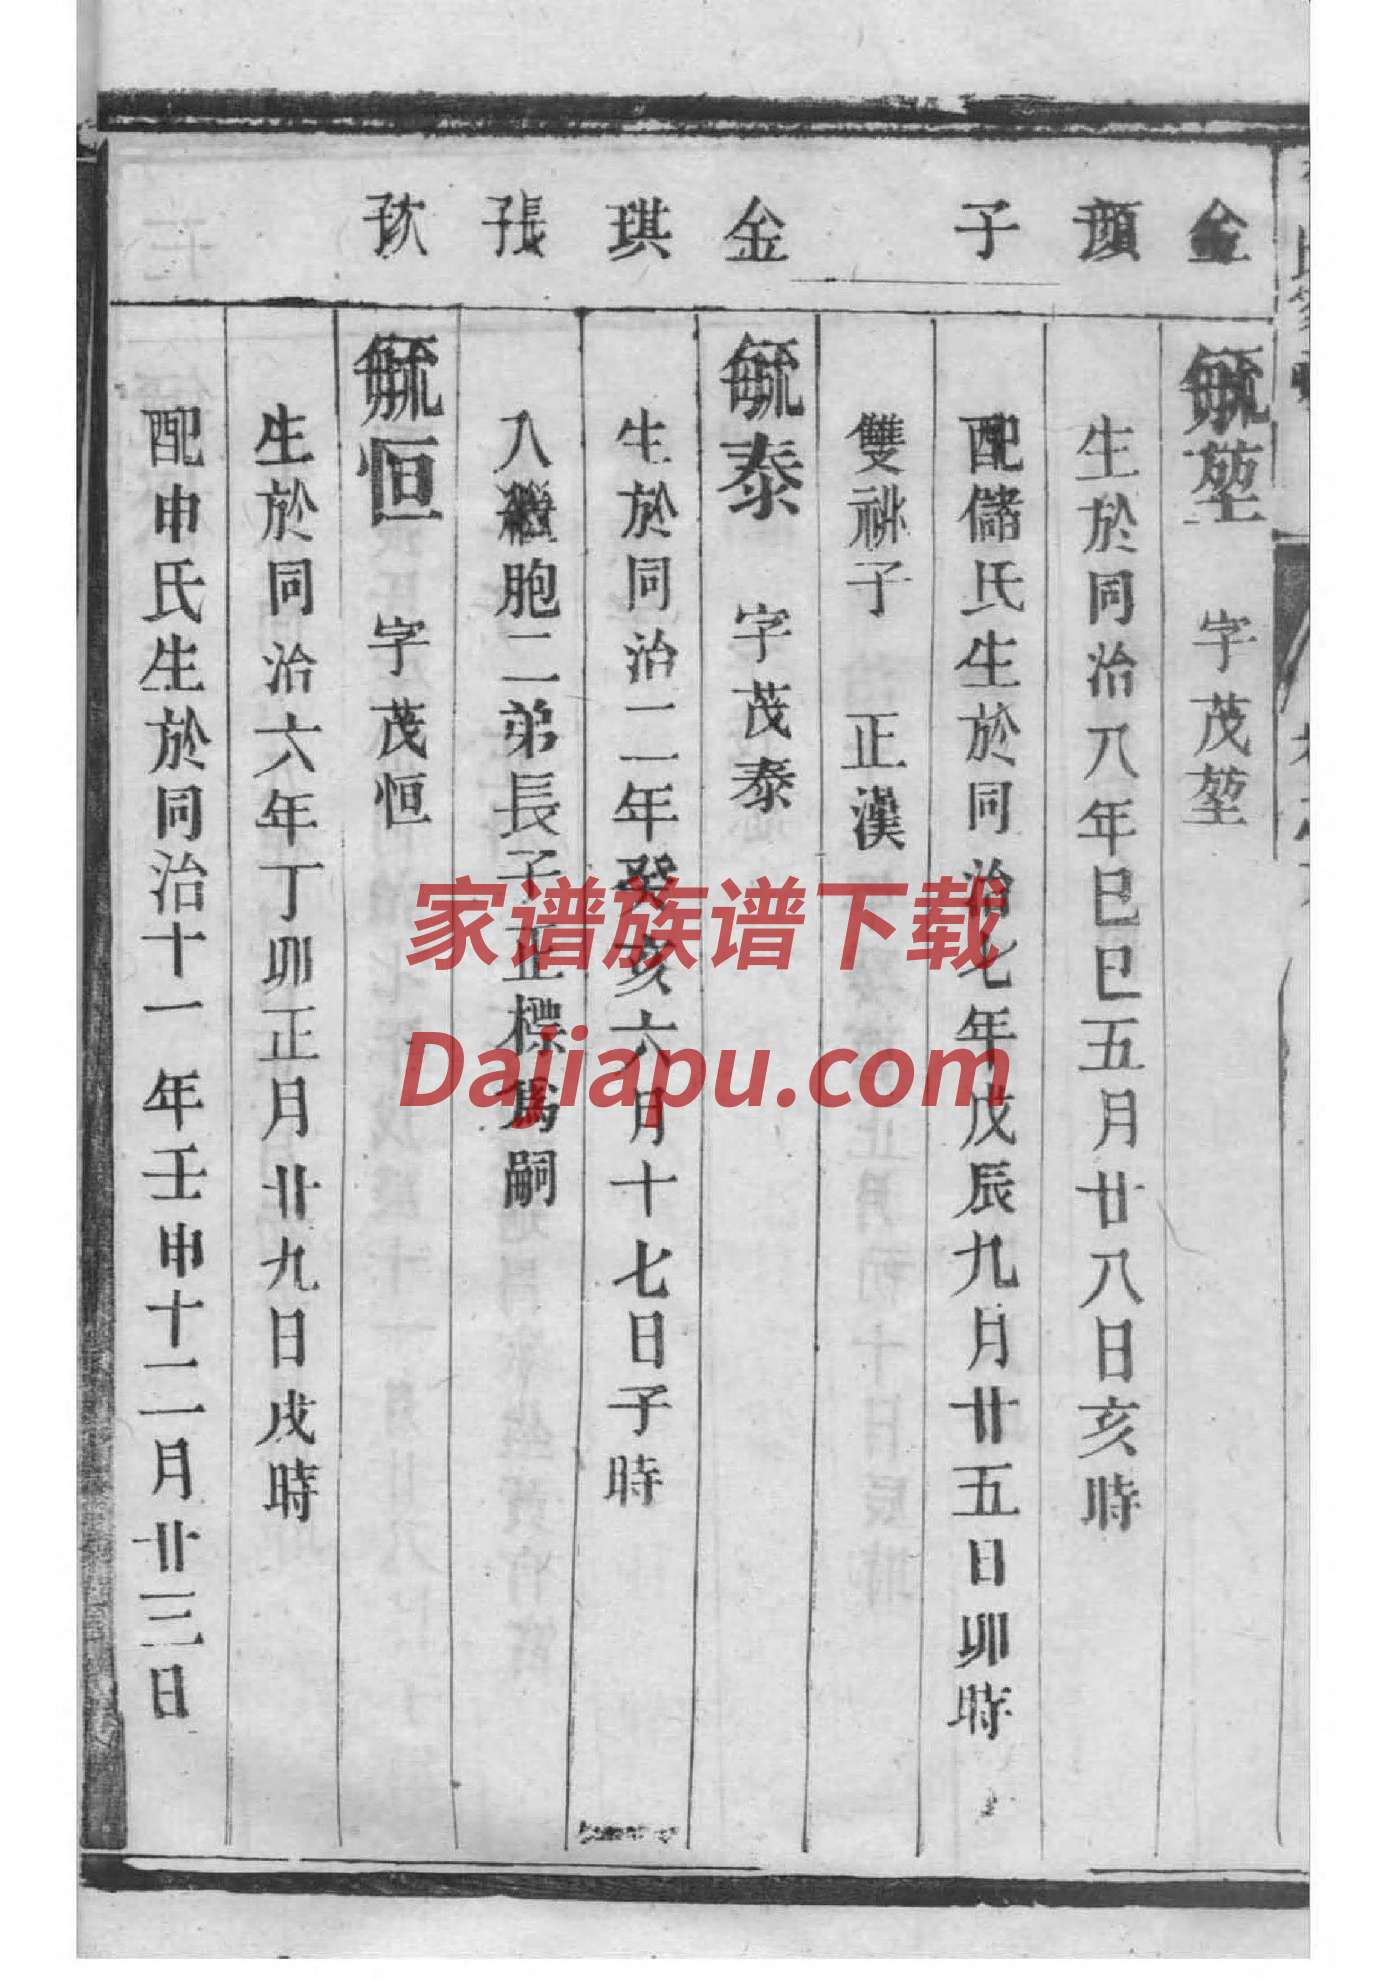 金顏子
金琪張
㺯
毓堃 字茂堃
生於同治八年巳巳五月廿八日亥時
配儲氏生於同治七年戊辰九月廿五日卯時
雙祧子 正漢
毓泰 字茂泰
生於同治二年癸亥六月十七日子時
入繼胞二弟長子正標爲嗣
毓恒 字茂恒
生於同治六年丁卯正月廿九日戌時
配申氏生於同治十一年壬申十二月廿三日
家谱族谱下载
Dajiapu.com